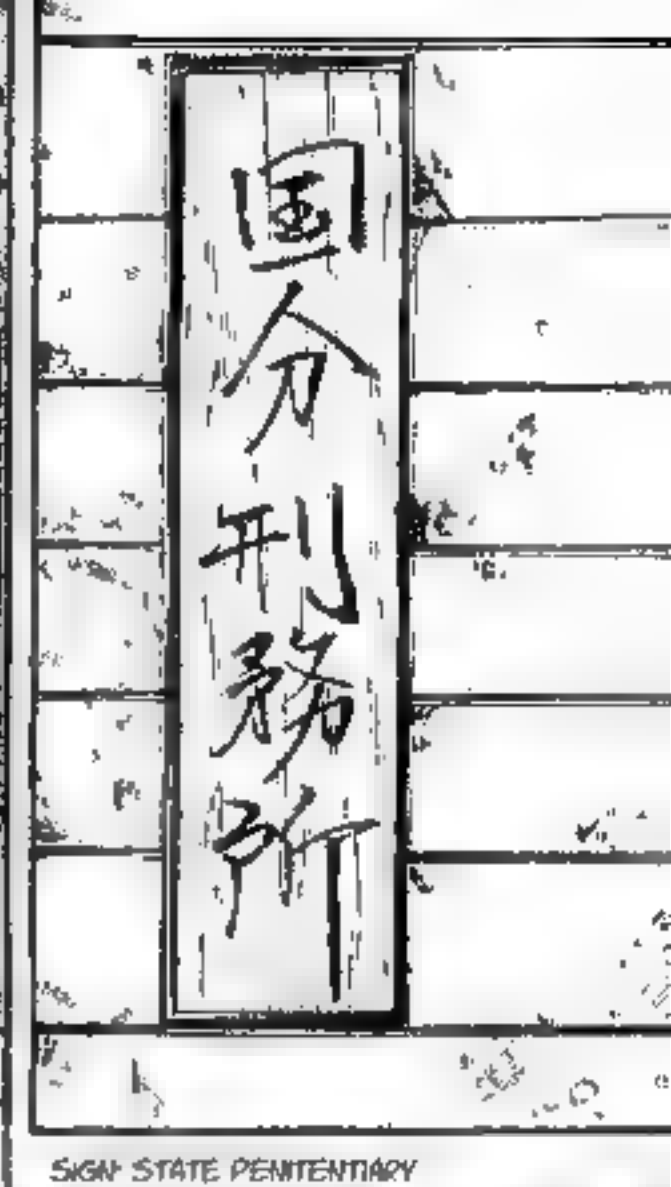 国分刑務所
SIGN: STATE PENITENTIARY